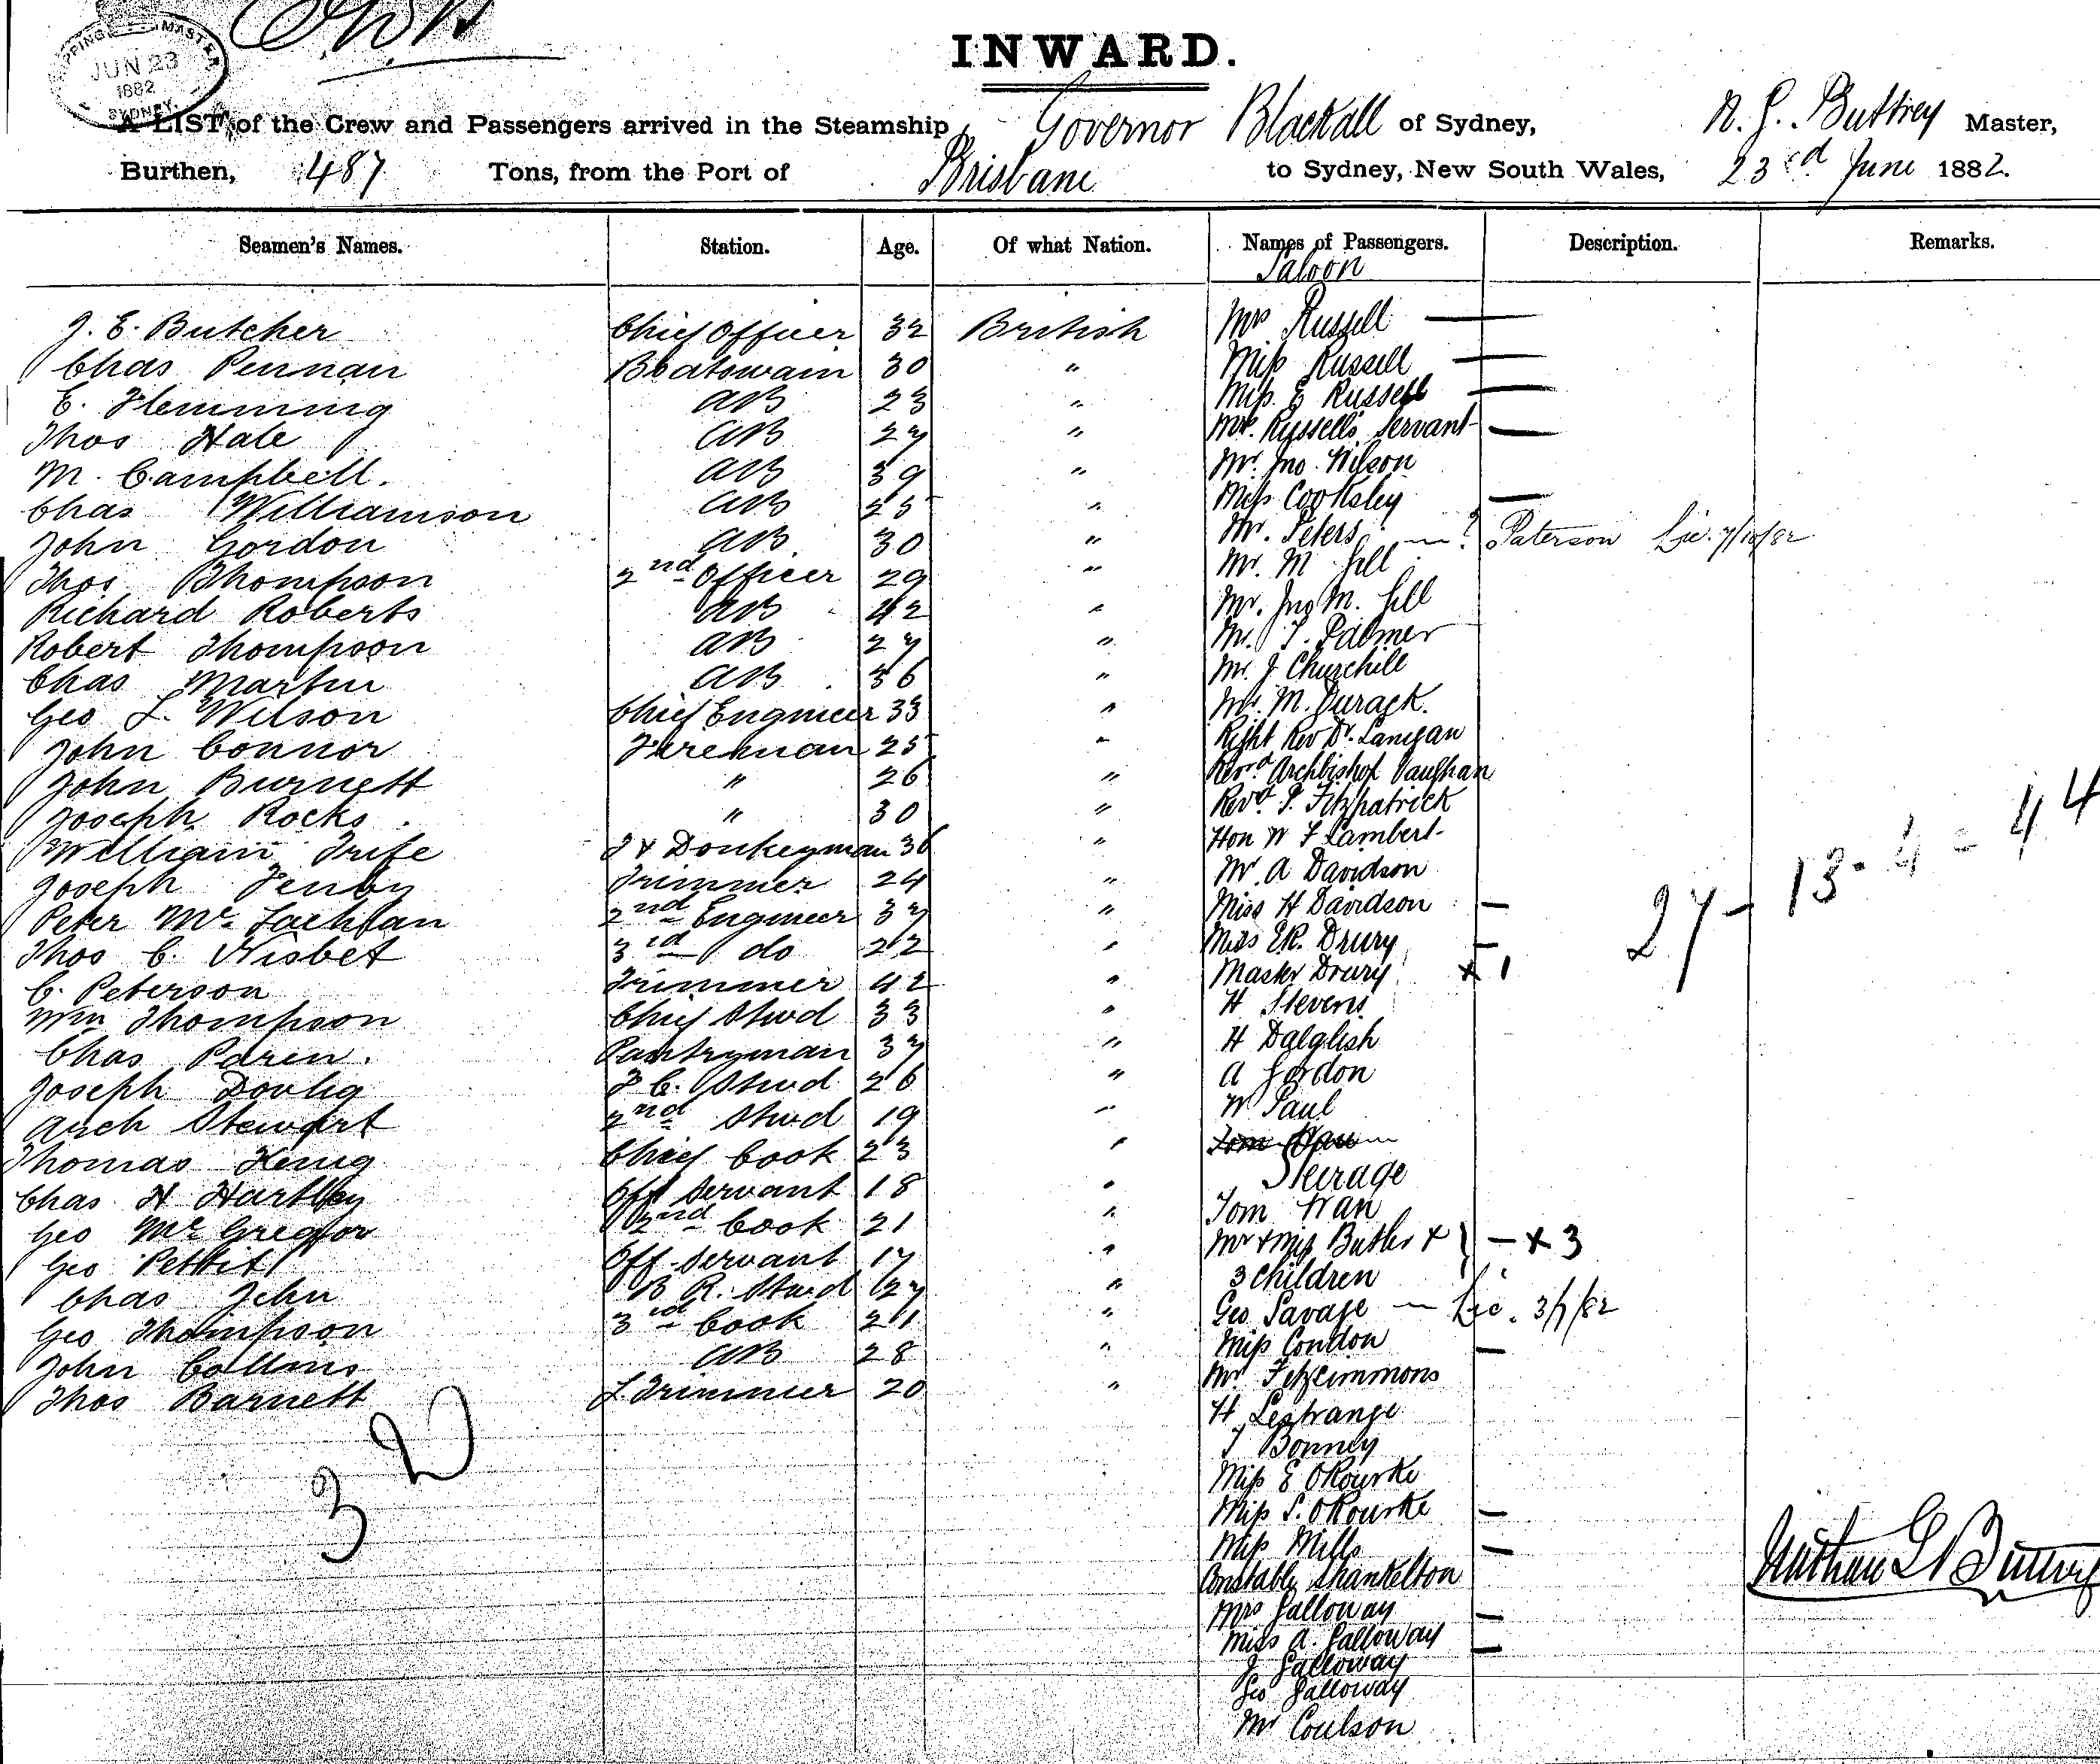 SHIPPING MASTER
JUN 23
1882
SYDNEY.
INWARD.
A LIST of the Crew and Passengers arrived in the Steamship Governor Blackall of Sydney, N. G. Buttrey Master,
Burthen, 487 Tons, from the Port of Brisbane to Sydney, New South Wales, 23rd June 1882.
Seamen's Names. Station. Age. Of what Nation. Names of Passengers. Description. Remarks.
Saloon
J. E. Butcher Chief Officer 32 British Mrs Russell —
Chas Pennan Boatswain 30 " Miss Russell —
E. Flemming AB 23 " Miss E Russell —
Thos Hale AB 27 " Mrs. Russell's Servant —
M. Campbell. AB 39 " Mr. Jno. Wilson
Chas Williamson AB 25 " Miss Cooksley —
John Gordon AB. 30 " Mr. Peters — ? Paterson Lic. 7/10/82
Thos Thompson 2nd Officer 29 " Mr. M Gill
Richard Roberts AB 42 " Mr. Jno M. Gill
Robert Thompson AB 27 " Mr. T. Palmer
Chas Martin AB 36 " Mr. J Churchill
Geo L. Wilson Chief Engineer 33 " Mr. M. Durack.
John Connor Fireman 25 " Right Rev Dr. Lanigan
John Burnett " 26 " Revrd Archbishop Vaughan
Joseph Rocks. " 30 " Revd. P. Fitzpatrick
William Trife F & Donkeyman 36 " Hon W F Lambert
Joseph Fenby Trimmer 24 " Mr. A Davidson
Peter McLachlan 2nd Engineer 37 " Miss H Davidson — 27 - 13 - 4 = 44
Thos C. Nisbet 3rd do 22 " Miss ER. Drury —
C. Peterson Trimmer 42 " Master Drury x 1
Wm Thompson Chief Stwd 33 " H Stevens
Chas Paren. Pantryman 37 " H Dalglish
Joseph F C. Stwd 26 " A Gordon
Arch Stewart 2nd Stwd 19 " W Paul
Thomas Chief Cook 23 " Tom
Steerage
Chas H Hartley Off Servant 18 " Tom Wan
Geo McGregor 2nd Cook 21 " Mr & Mrs Butler & } — x 3
Geo Pettit Off. Servant 17 " 3 children
Chas Jehn B R. Stwd 27 " Geo Savage — Lic. 3/7/82
Geo Thompson 3rd Cook 21 " Miss Condon —
John Collins AB 28 " Mr Fitzsimmons
Thos Barnett L. Trimmer 20 " H Lestrange
T Bonney
32
Miss E ORourke
Miss S. ORourke —
Miss Mills —
Constable Shankelton
Mrs Galloway —
Miss A. Galloway —
J Galloway
Geo Galloway
Mr Coulson
Nathan G Buttrey